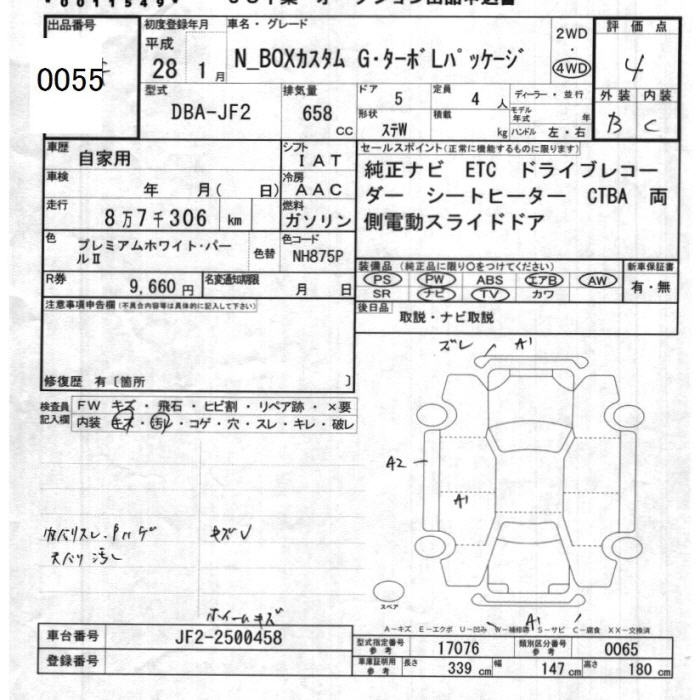 *0011549*
出品番号
0055
初度登録年月
平成
28年 1月
車名・グレード
N_BOXカスタム G・ターボLパッケージ
2WD
・
4WD
評価点
4
外装 内装
B C
型式
DBA-JF2
排気量
658
CC
ドア
5
定員
4 人
ディーラー・並行
形状
ステW
積載
kg
モデル年式 年
ハンドル 左・右
車歴
自家用
シフト
IAT
車検
年 月( 日)
冷房
AAC
走行
8万7千306 km
燃料
ガソリン
色
プレミアムホワイト・パールⅡ
色替
色コード
NH875P
R券
9,660円
名変通知期限
月 日
セールスポイント(正常に機能するものに限ります)
純正ナビ ETC ドライブレコー
ダー シートヒーター CTBA 両
側電動スライドドア
装備品 (純正品に限り○をつけてください)
PS PW ABS エアB AW
SR ナビ TV カワ
新車保証書
有・無
後日品
取説・ナビ取説
注意事項申告欄(不具合内容等は具体的に記入して下さい)
修復歴 有〔箇所 〕
検査員
記入欄
FW キズ・飛石・ヒビ割・リペア跡・×要
内装 キズ・汚・コゲ・穴・スレ・キレ・破レ
ズレ A1
A2
A1
キズ
汚し
スペア
ホイールキズ
A1
A-キズ E-エクボ U-凹み W-補修跡 S-サビ C-腐食 XX-交換済
車台番号
JF2-2500458
登録番号
型式指定番号
参考
17076
類別区分番号
参考
0065
車庫証明用
参考
長さ 339 cm 幅 147 cm 高さ 180 cm